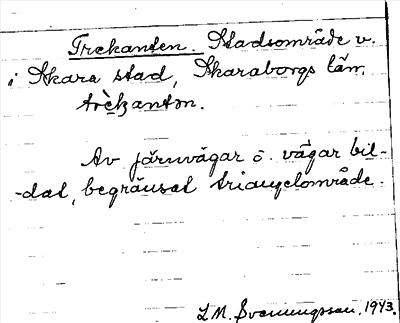 Trekanten. Stadsområde v.
i Skara stad, Skaraborgs län.
trèkantən.
Av järnvägar o. vägar bil-
-dat, begränsat triangelområde.
L M. Svenungsson, 1943.